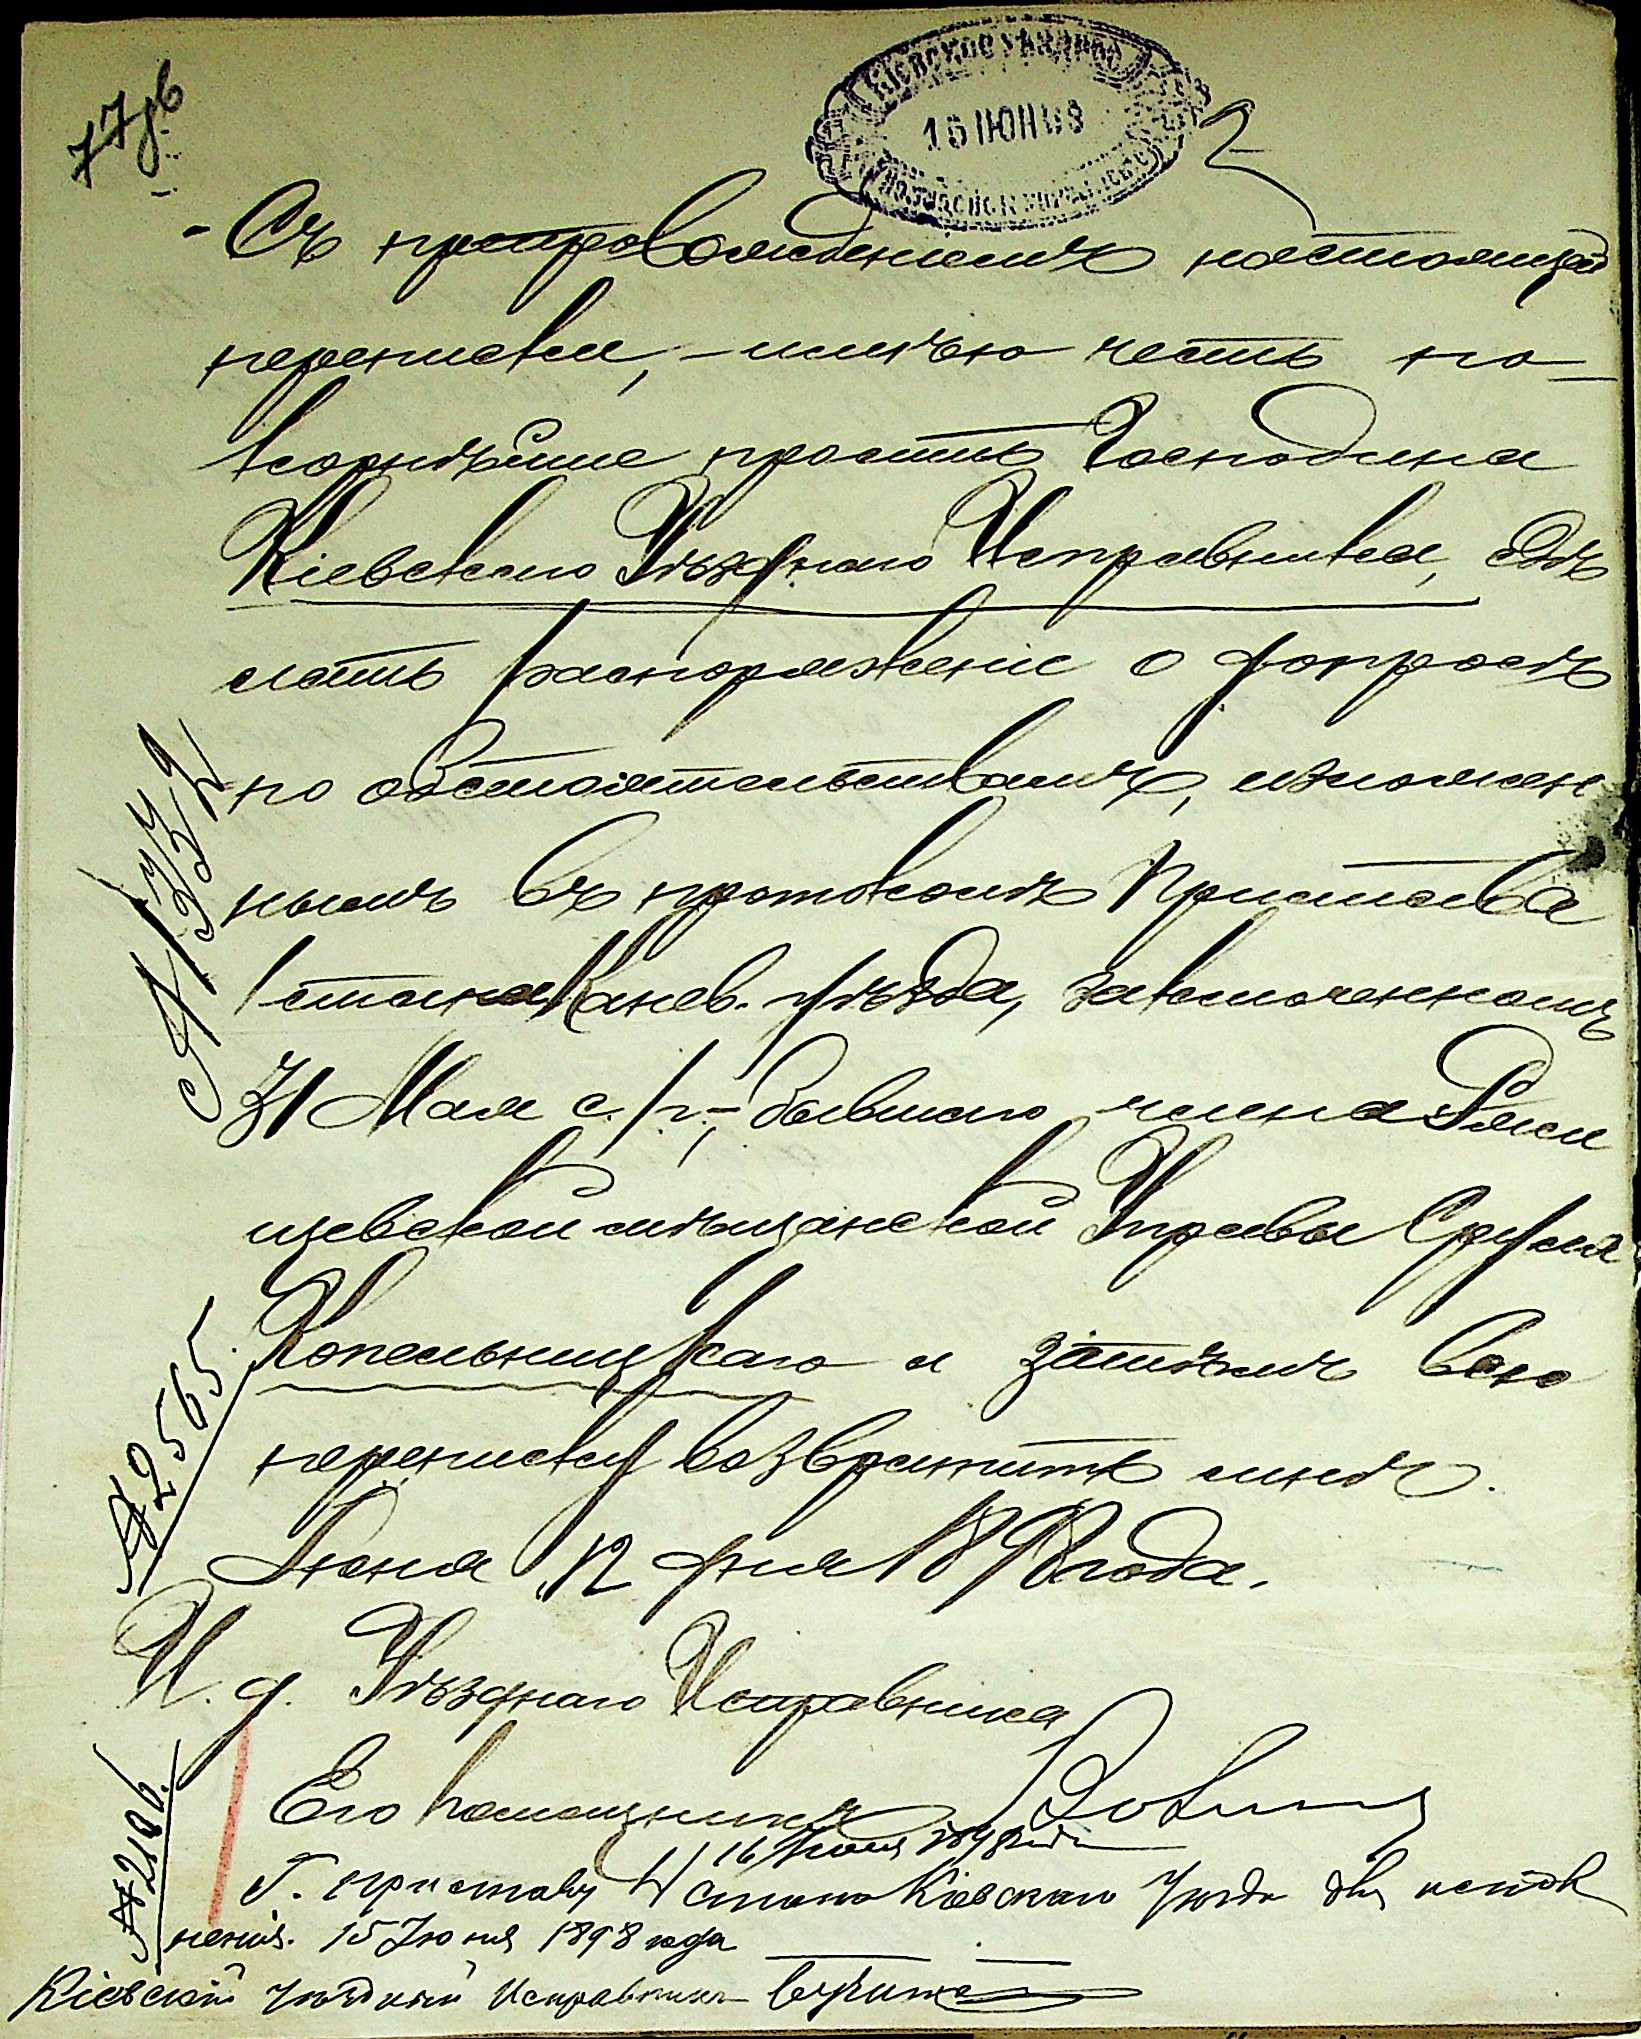 КІЕВСКОЕ УѢЗДНОЕ
15 ІЮН 98
ПОЛИЦЕЙСК УПРАВЛЕНІЕ
2
Съ препровожденіемъ настоящей
переписки, - имѣю честь по-
корнѣйше просить Господина
Кіевскаго Уѣзднаго Исправника, сдѣ
лать распоряженіе о допросѣ
по обстоятельствамъ, изложен
нымъ въ протоколѣ Пристава
1 стана Канев. уѣзда, заключенномъ
31 Мая с./г., - бывшаго члена Ржи
щевской мѣщанской Управы Сруля
Копельницкаго и затѣмъ всю
переписку возвратить мнѣ.
Іюня 12 дня 1898 года.
И. д. Уѣзднаго Исправника
Его Помощникъ
№ 2565.
№ 2106.
16 Іюня 1898 года
Г. Приставу 4 стана Кіевскаго Уѣзда для испол
ненія. 15 Іюня 1898 года
Кіевскій Уѣздный Исправникъ